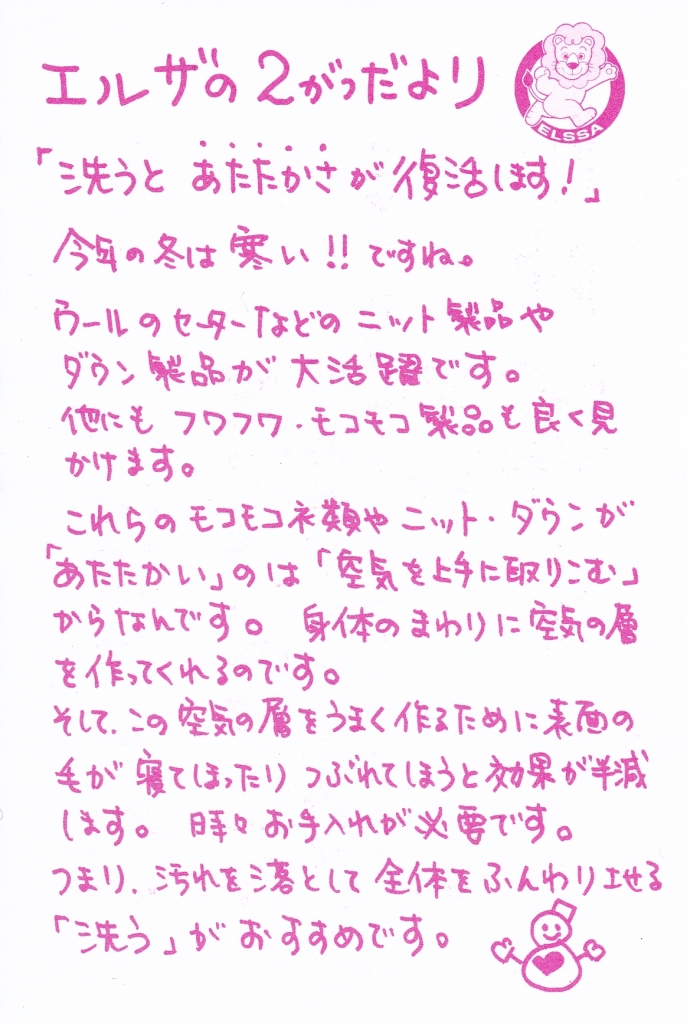 エルザの2がつだより
ELSSA
「洗うと あたたかさが復活します!」
今年の冬は寒い!!ですね。
ウールのセーターなどのニット製品や
ダウン製品が大活躍です。
他にもフワフワ・モコモコ製品も良く見
かけます。
これらのモコモコ衣類やニット・ダウンが
「あたたかい」のは「空気を上手に取りこむ」
からなんです。 身体のまわりに空気の層
を作ってくれるのです。
そして、この空気の層をうまく作るために表面の
毛が寝てしまったりつぶれてしまうと効果が半減
します。 時々お手入れが必要です。
つまり、汚れを落として全体をふんわりさせる
「洗う」がおすすめです。